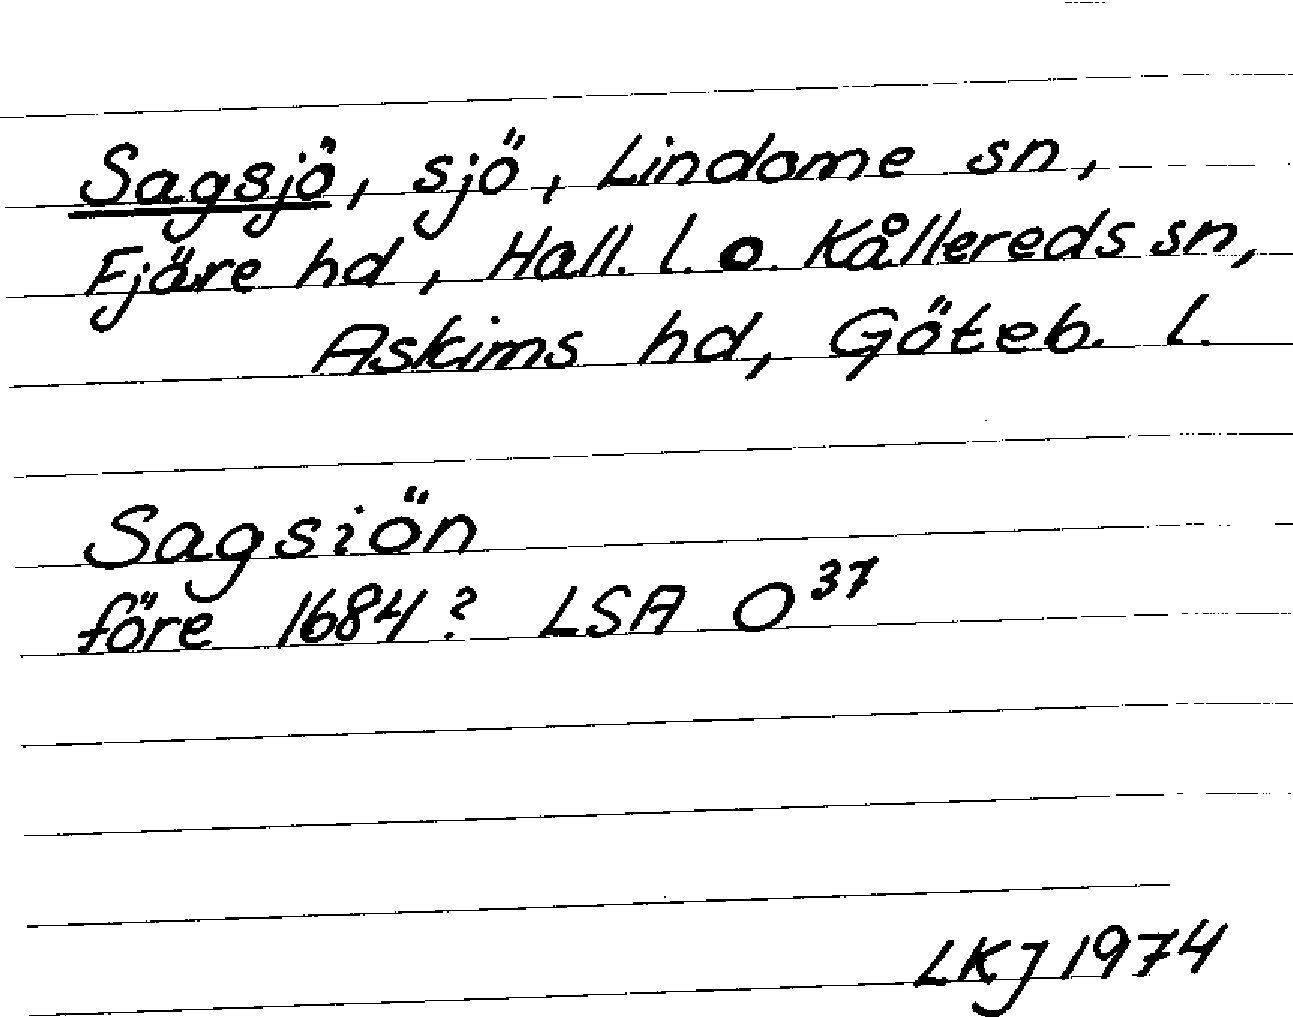 Sagsjö, sjö, Lindome sn,
Fjäre hd, Hall. l. o. Kållereds sn,
Askims hd, Göteb. l.
Sagsiön
före 1684? LSA O³⁷
LKJ 1974